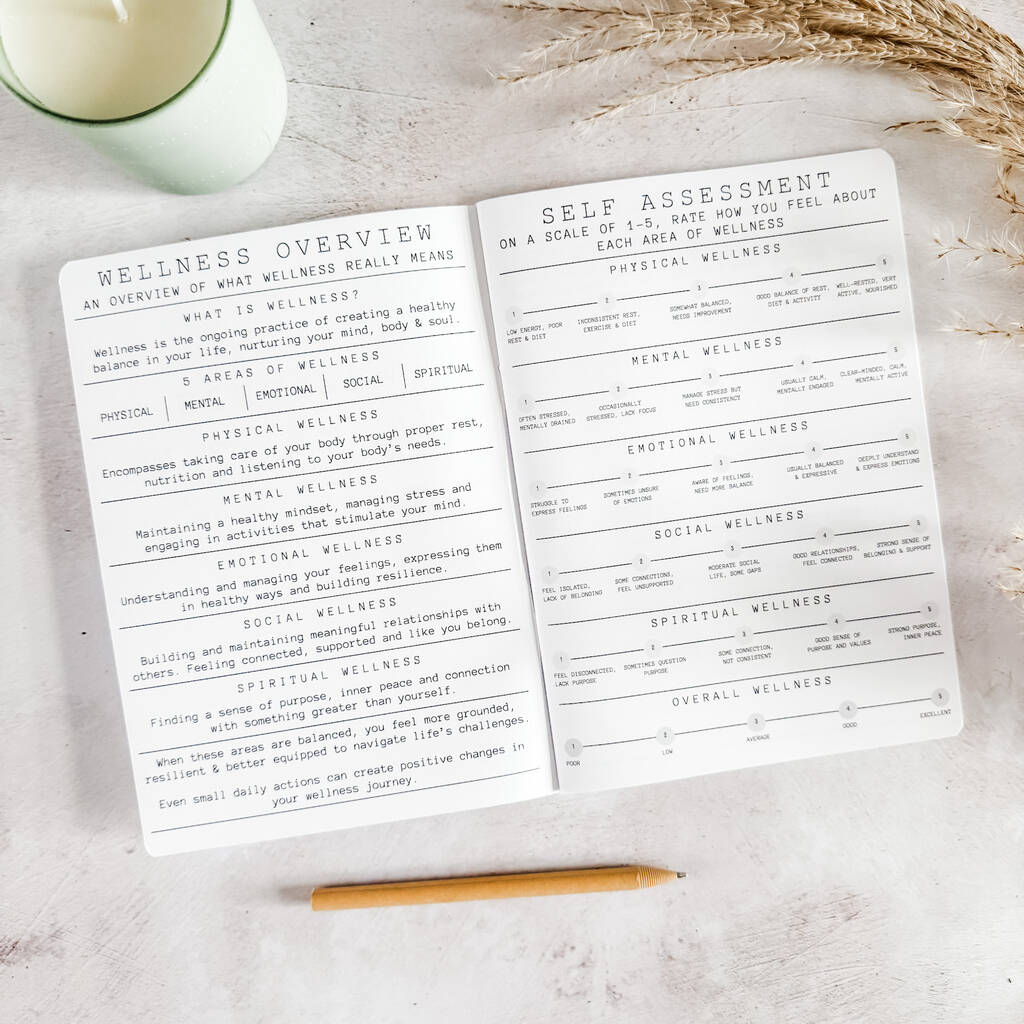 WELLNESS OVERVIEW
AN OVERVIEW OF WHAT WELLNESS REALLY MEANS
WHAT IS WELLNESS?
Wellness is the ongoing practice of creating a healthy
balance in your life, nurturing your mind, body & soul.
5 AREAS OF WELLNESS
PHYSICAL | MENTAL | EMOTIONAL | SOCIAL | SPIRITUAL
PHYSICAL WELLNESS
Encompasses taking care of your body through proper rest,
nutrition and listening to your body's needs.
MENTAL WELLNESS
Maintaining a healthy mindset, managing stress and
engaging in activities that stimulate your mind.
EMOTIONAL WELLNESS
Understanding and managing your feelings, expressing them
in healthy ways and building resilience.
SOCIAL WELLNESS
Building and maintaining meaningful relationships with
others. Feeling connected, supported and like you belong.
SPIRITUAL WELLNESS
Finding a sense of purpose, inner peace and connection
with something greater than yourself.
When these areas are balanced, you feel more grounded,
resilient & better equipped to navigate life's challenges.
Even small daily actions can create positive changes in
your wellness journey.
SELF ASSESSMENT
ON A SCALE OF 1-5, RATE HOW YOU FEEL ABOUT
EACH AREA OF WELLNESS
PHYSICAL WELLNESS
1 2 3 4 5
LOW ENERGY, POOR
REST & DIET
INCONSISTENT REST,
EXERCISE & DIET
SOMEWHAT BALANCED,
NEEDS IMPROVEMENT
GOOD BALANCE OF REST,
DIET & ACTIVITY
WELL-RESTED, VERY
ACTIVE, NOURISHED
MENTAL WELLNESS
1 2 3 4 5
OFTEN STRESSED,
MENTALLY DRAINED
OCCASIONALLY
STRESSED, LACK FOCUS
MANAGE STRESS BUT
NEED CONSISTENCY
USUALLY CALM,
MENTALLY ENGAGED
CLEAR-MINDED, CALM,
MENTALLY ACTIVE
EMOTIONAL WELLNESS
1 2 3 4 5
STRUGGLE TO
EXPRESS FEELINGS
SOMETIMES UNSURE
OF EMOTIONS
AWARE OF FEELINGS,
NEED MORE BALANCE
USUALLY BALANCED
& EXPRESSIVE
DEEPLY UNDERSTAND
& EXPRESS EMOTIONS
SOCIAL WELLNESS
1 2 3 4 5
FEEL ISOLATED,
LACK OF BELONGING
SOME CONNECTIONS,
FEEL UNSUPPORTED
MODERATE SOCIAL
LIFE, SOME GAPS
GOOD RELATIONSHIPS,
FEEL CONNECTED
STRONG SENSE OF
BELONGING & SUPPORT
SPIRITUAL WELLNESS
1 2 3 4 5
FEEL DISCONNECTED,
LACK PURPOSE
SOMETIMES QUESTION
PURPOSE
SOME CONNECTION,
NOT CONSISTENT
GOOD SENSE OF
PURPOSE AND VALUES
STRONG PURPOSE,
INNER PEACE
OVERALL WELLNESS
1 2 3 4 5
POOR
LOW
AVERAGE
GOOD
EXCELLENT